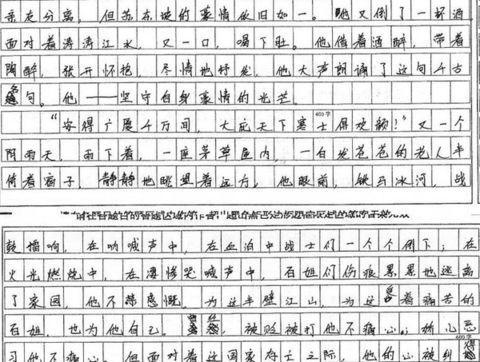 亲走分离，但苏东坡的豪情依旧如一。他又倒了一杯酒
面对着涛涛江水，又一口，喝下肚。他借着酒醉，带着
陶醉，张开怀抱，尽情地抒发，他大声朗诵了这句千古
名句。他——坚守自身豪情的光芒。
400字
“安得广厦千万间，大庇天下寒士俱欢颜！”又一个
阴雨天，雨下着，一座茅草屋内，一白发苍苍的老人半
倚着窗子，静静地眺望着远方，他眼前，铁马冰河，战
鼓擂响，在呐喊声中，在血泊中战士们一个个倒下；在
火光燃烧中，在凄惨哭喊声中，百姓们伤痕累累地逃离
了家园，他不禁感慨，为这半壁江山，为这着痛苦的
百姓，也为他自己。被贬被打他不痛心；幼儿恶
习他不痛心。但面对着这国家存亡之际，他的心被纠得
600字